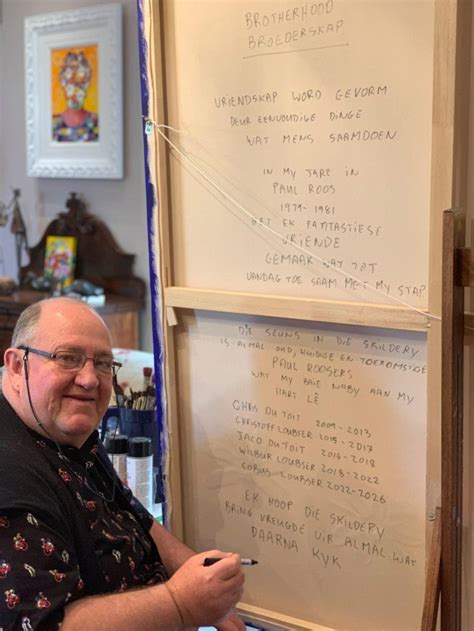 BROTHERHOOD
BROEDERSKAP
VRIENDSKAP WORD GEVORM
DEUR EENVOUDIGE DINGE
WAT MENS SAAMDOEN
IN MY JARE IN
PAUL ROOS
1979-1981
HET EK FANTASTIESE
VRIENDE
GEMAAK WAT TOT
VANDAG TOE SAAM MET MY STAP
DIE SEUNS IN DIE SKILDERY
IS ALMAL OUD, HUIDIGE EN TOEKOMSTIGE
PAUL ROOSERS
WAT MY BAIE NABY AAN MY
HART LÊ
CHRIS DU TOIT 2009-2013
CHRISTOFF LOUBSER 2015-2017
JACO DU TOIT 2016-2018
WILBUR LOUBSER 2018-2022
COBUS LOUBSER 2022-2026
EK HOOP DIE SKILDERY
BRING VREUGDE VIR ALMAL WAT
DAARNA KYK